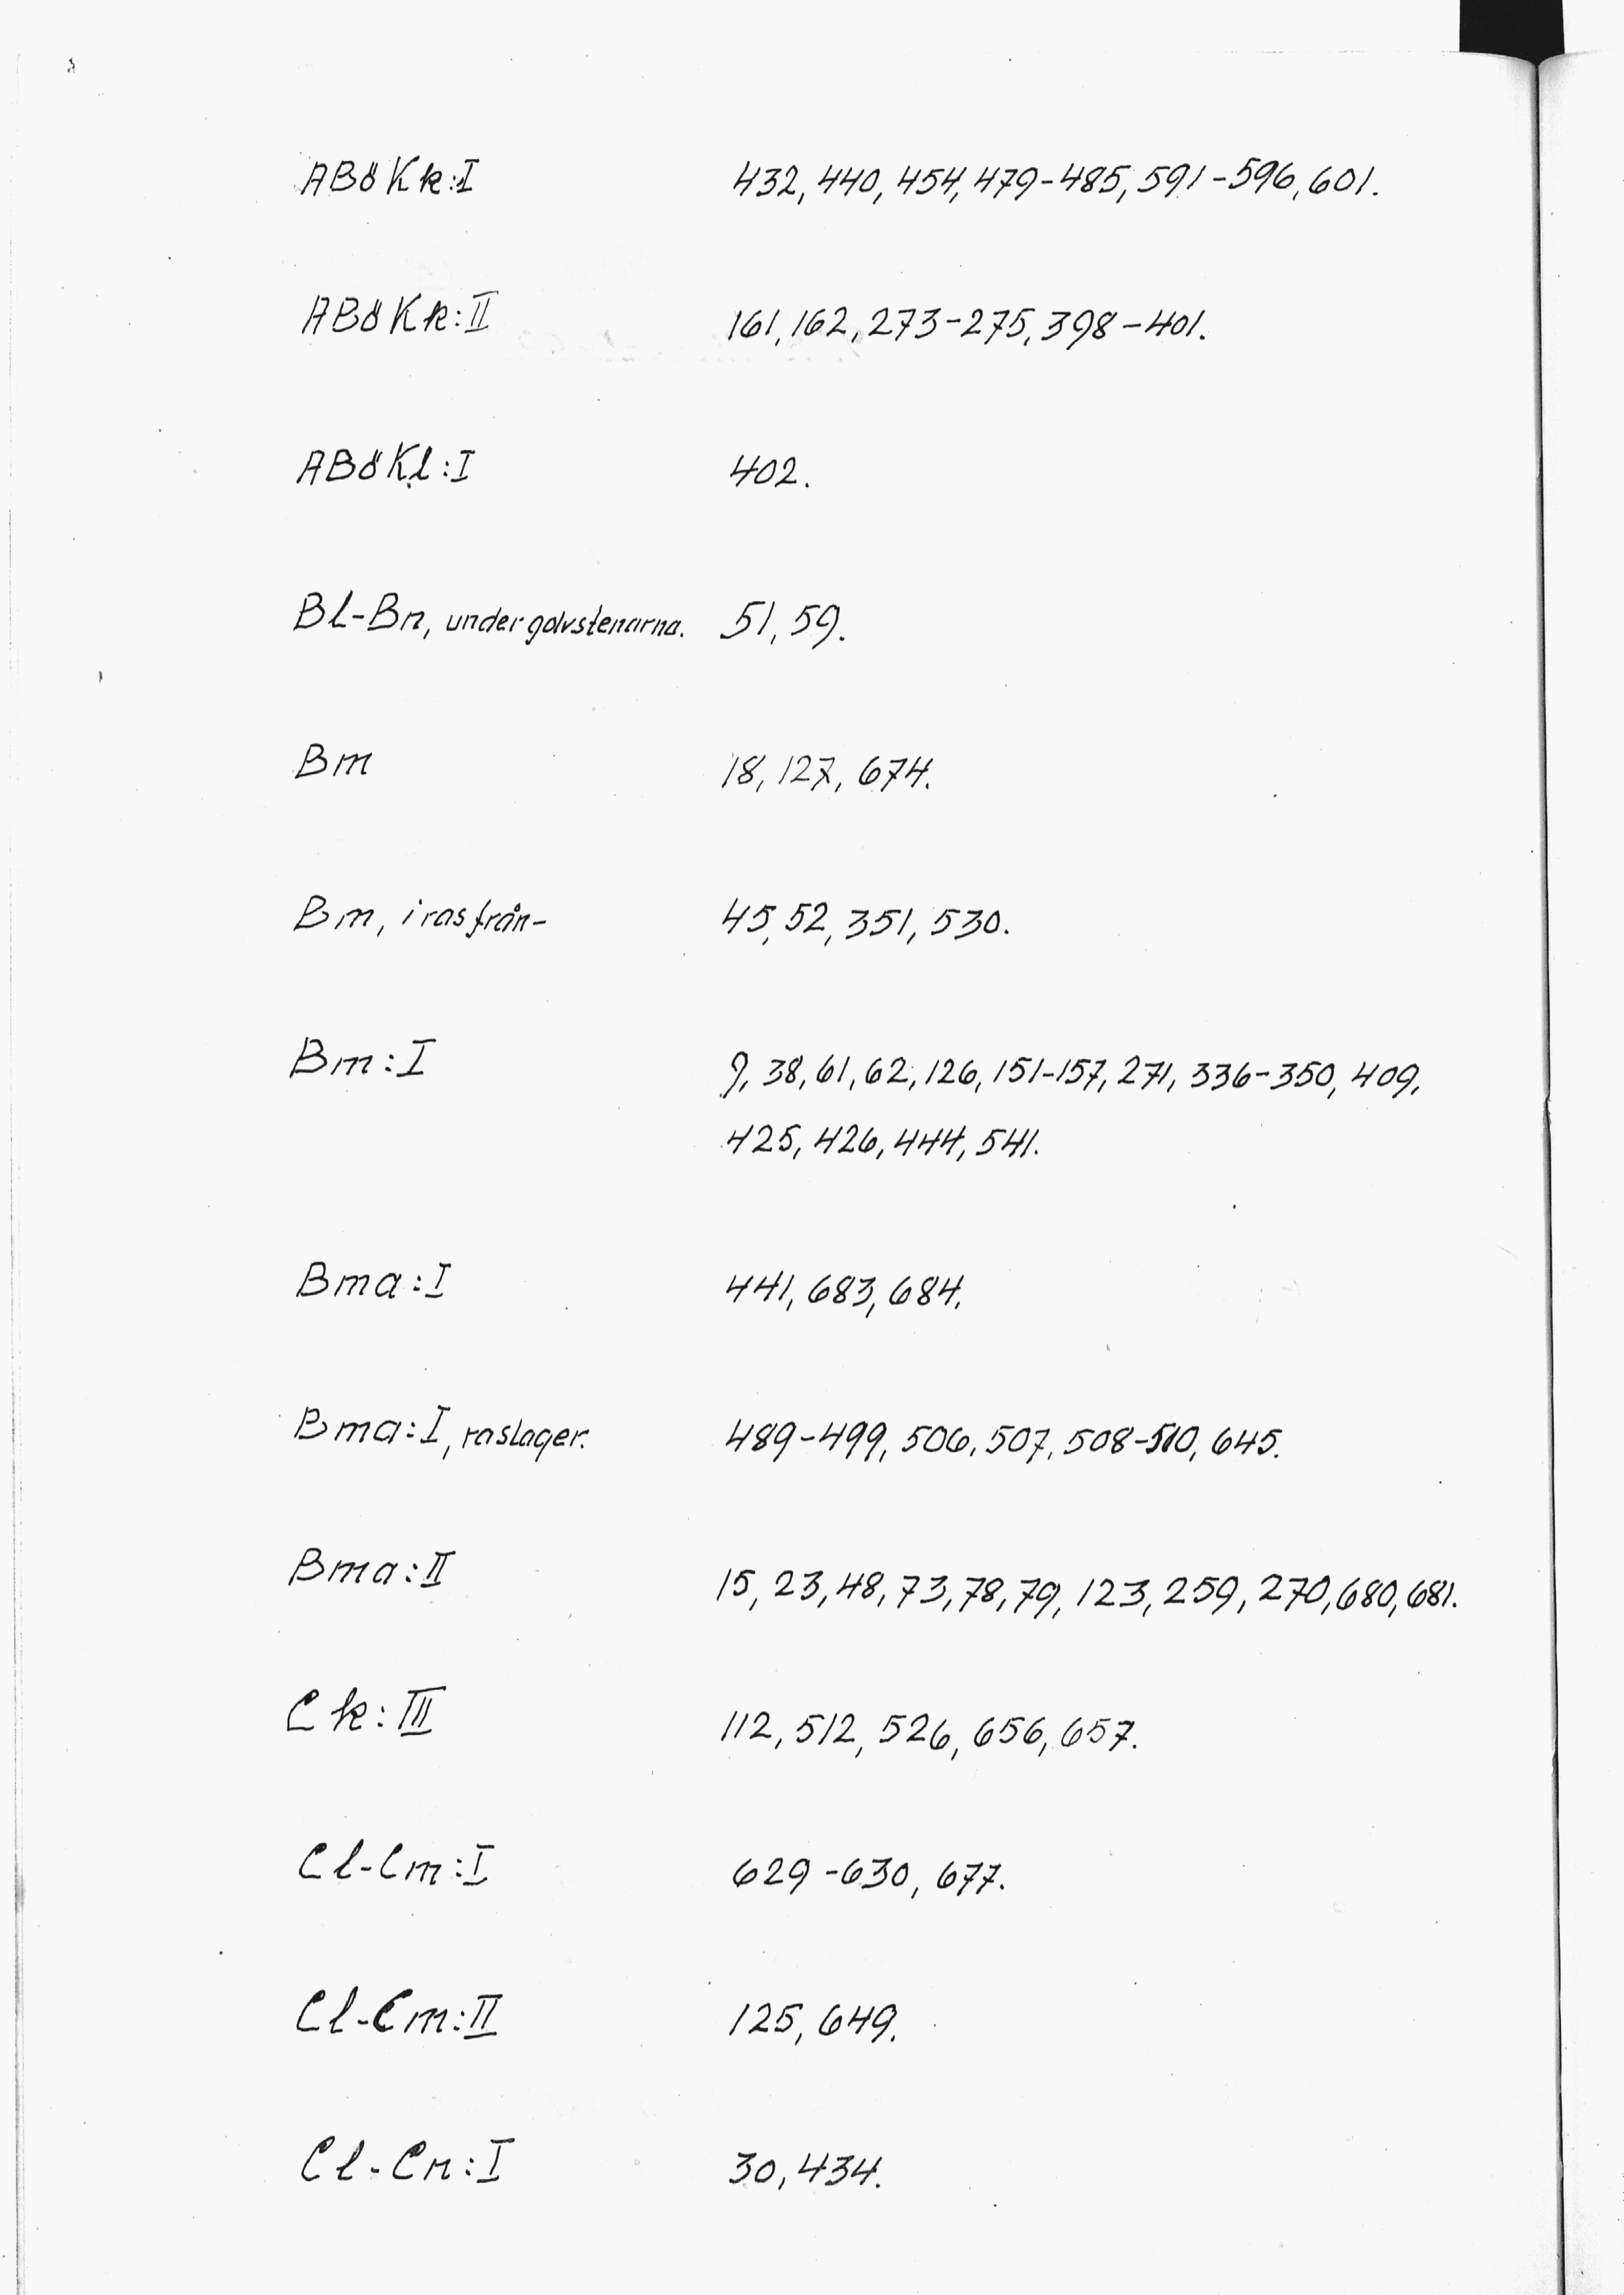 ABö Kk:I 432, 440, 454, 479-485, 591-596, 601.
ABö Kk:II 161, 162, 273-275, 398-401.
ABö Kl:I 402.
Bl-Bn, under golvstenarna. 51, 59.
Bm 18, 127, 674.
Bm, i ras från- 45, 52, 351, 530.
Bm:I 9, 38, 61, 62, 126, 151-157, 271, 336-350, 409,
425, 426, 444, 541.
Bma:I 441, 683, 684.
Bma:I, raslager. 489-499, 506, 507, 508-510, 645.
Bma:II 15, 23, 48, 73, 78, 79, 123, 259, 270, 680, 681.
Ck:III 112, 512, 526, 656, 657.
Cl-Cm:I 629-630, 677.
Cl-Cm:II 125, 649.
Cl-Cn:I 30, 434.